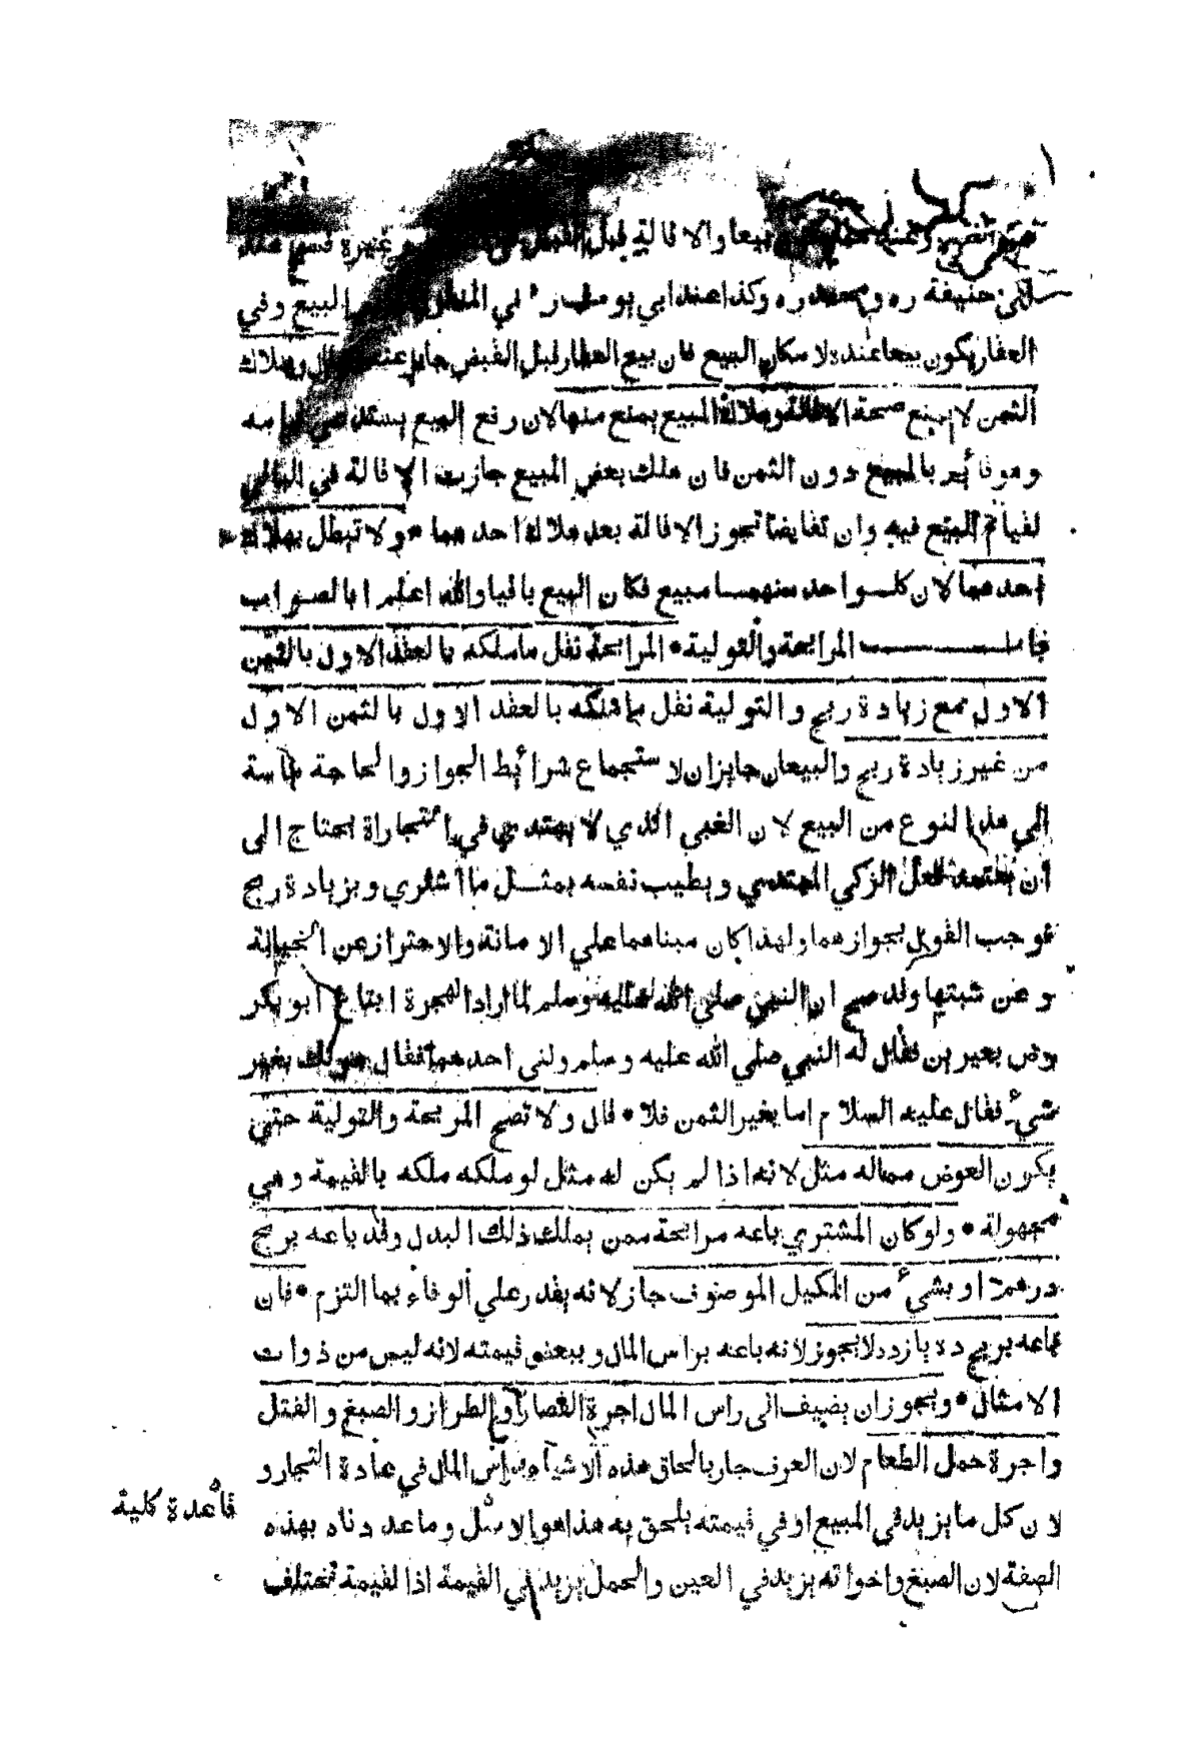 بيعا والاقالة قبل القبض في غيره فسخ عند
ابي حنيفة ره ومحمد ره وكذا عند ابي يوسف ره في المنقول البيع وفي
العقار يكون بيعا عنده لامكان البيع فان بيع العقار قبل القبض جايز عنده قال وهلاك
الثمن لا يمنع صحة الاقالة وهلاك المبيع يمنع منها لان رفع البيع يستدعي قيامه
وهو قائم بالمبيع دون الثمن فان هلك بعض المبيع جازت الاقالة في الباقي
لقيام البيع فيه وان تقايضا تجوز الاقالة بعد هلاك احدهما • ولا تبطل بهلاك
احدهما لان كل واحد منهما مبيع فكان البيع باقيا والله اعلم بالصواب
باب المرابحة والتولية • المرابحة نقل ما ملكه بالعقد الاول بالثمن
الاول مع زيادة ربح والتولية نقل ما ملكه بالعقد الاول بالثمن الاول
من غير زيادة ربح والبيعان جايزان لاستجماع شرائط الجواز والحاجة ماسة
الى هذا النوع من البيع لان الغبي الذي لا يهتدي في التجارة يحتاج الى
ان يعتمد فعل الزكي المهتدي ويطيب نفسه بمثل ما اشتري وبزيادة ربح
فوجب القول بجوازهما ولهذا كان مبناهما علي الامانة والاحتراز عن الخيانة
وعن شبتها وقد صح ان النبي صلي الله عليه وسلم لما اراد الهجرة ابتاع ابو بكر
رض بعيرين فقال له النبي صلي الله عليه وسلم ولني احدهما فقال هو لك بغير
شيء فقال عليه السلام اما بغير الثمن فلا • قال ولا تصح المربحة والتولية حتى
يكون العوض مماله مثل لانه اذا لم يكن له مثل لو ملكه ملكه بالقيمة وهي
مجهولة • ولو كان المشتري باعه مرابحة ممن يملك ذلك البدل وقد باعه بربح
درهم او بشيء من المكيل الموصوف جاز لانه يقدر علي الوفاء بما التزم • فان
باعه بربح ده يازده لا يجوز لانه باعه براس المال وببعض قيمته لانه ليس من ذوات
الامثال • ويجوز ان يضيف الى راس المال اجرة القصار والطراز والصبغ والفتل
واجرة حمل الطعام لان العرف جار بالحاق هذه الاشياء براس المال في عادة التجار و
لان كل ما يزيد في المبيع او في قيمته يلحق به هذا هو الاصل وما عددناه بهذه
الصفة لان الصبغ واخواته يزيد في العين والحمل يزيد في القيمة اذ القيمة تختلف
قاعدة كلية